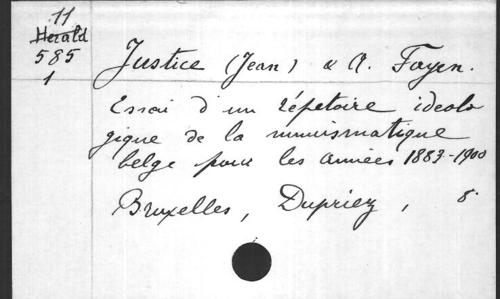 11
Herald
585
1
Justice (Jean) & A. Fayen.
Essai d'un répetoire ideolo
gique de la numismatique
belge pour les années 1883-1900
Bruxelles, Dupriez, 8°